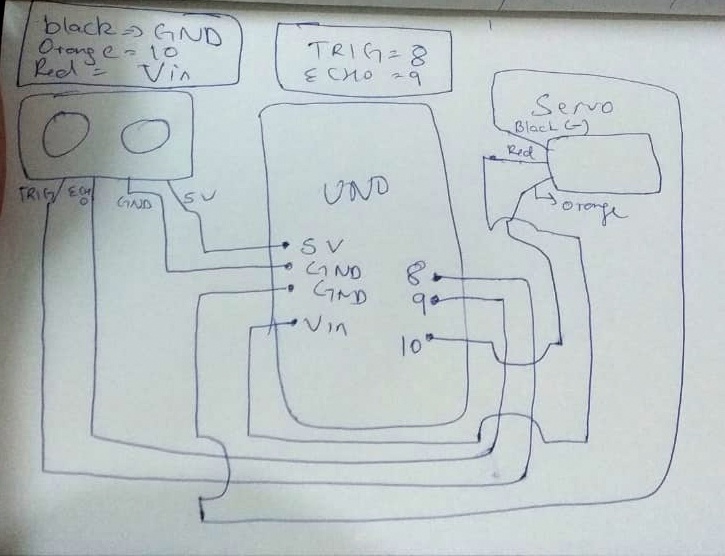 black => GND
Orange = 10
Red = Vin
TRIG = 8
ECHO = 9
Servo
Black (-)
Red
Orange
TRIG
ECHO
GND
5V
UNO
5V
GND
GND
Vin
8
9
10